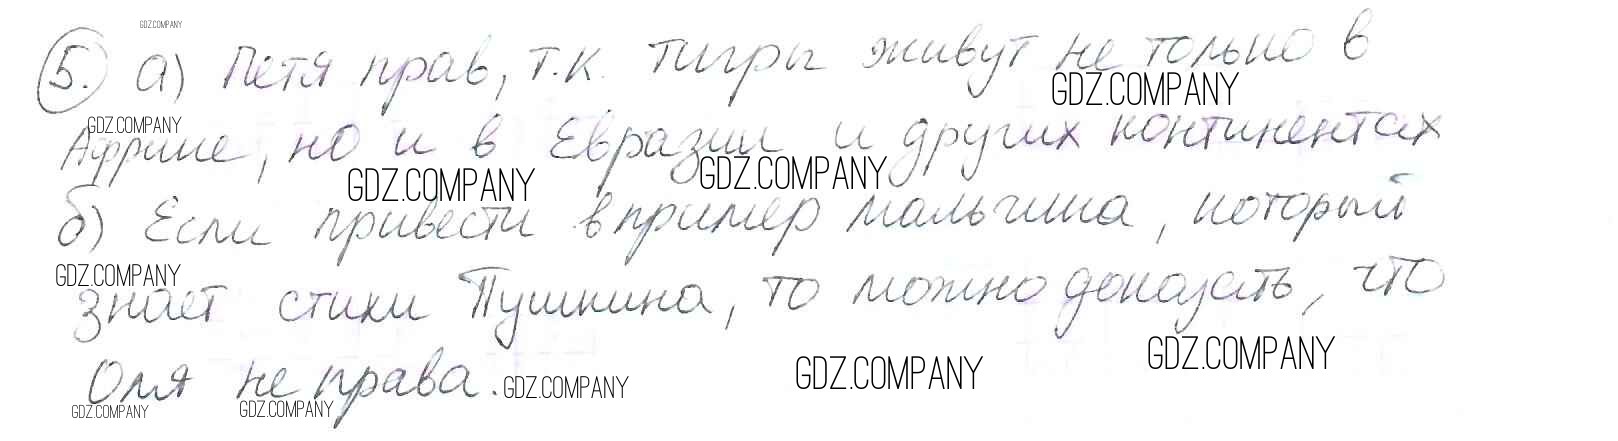 GDZ.COMPANY
5. а) Петя прав, т.к. тигры живут не только в
GDZ.COMPANY
GDZ.COMPANY
Африке, но и в Евразии и других континентах
GDZ.COMPANY GDZ.COMPANY
б) Если привести в пример мальчика, который
GDZ.COMPANY
знает стихи Пушкина, то можно доказать, что
GDZ.COMPANY
Оля не права. GDZ.COMPANY GDZ.COMPANY
GDZ.COMPANY GDZ.COMPANY